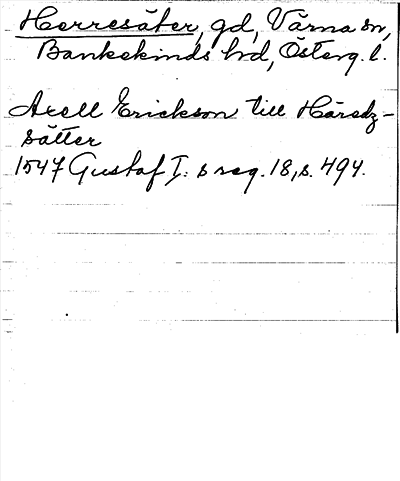 Herresäter, gd, Värna sn,
Bankekinds hrd, Österg. l.
Axell Erickson till Häradz-
sätter
1547 Gustaf I:s reg. 18, s. 494.